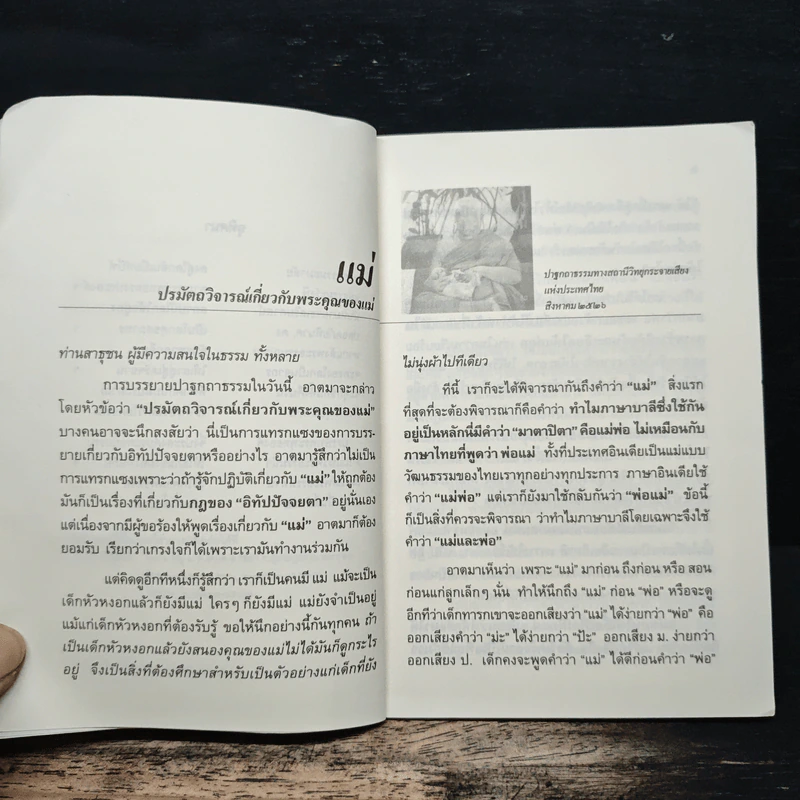 แม่
ปรมัตถวิจารณ์เกี่ยวกับพระคุณของแม่
ท่านสาธุชน ผู้มีความสนใจในธรรม ทั้งหลาย
การบรรยายปาฐกถาธรรมในวันนี้ อาตมาจะกล่าว
โดยหัวข้อว่า “ปรมัตถวิจารณ์เกี่ยวกับพระคุณของแม่”
บางคนอาจจะนึกสงสัยว่า นี่เป็นการแทรกแซงของการบรร-
ยายเกี่ยวกับอิทัปปัจจยตาหรืออย่างไร อาตมารู้สึกว่าไม่เป็น
การแทรกแซงเพราะว่าถ้ารู้จักปฏิบัติเกี่ยวกับ “แม่” ให้ถูกต้อง
มันก็เป็นเรื่องที่เกี่ยวกับกฎของ “อิทัปปัจจยตา” อยู่นั่นเอง
แต่เนื่องจากมีผู้ขอร้องให้พูดเรื่องเกี่ยวกับ “แม่” อาตมาก็ต้อง
ยอมรับ เรียกว่าเกรงใจก็ได้เพราะเรามันทำงานร่วมกัน
แต่คิดดูอีกทีหนึ่งก็รู้สึกว่า เราก็เป็นคนมี แม่ แม้จะเป็น
เด็กหัวหงอกแล้วก็ยังมีแม่ ใครๆ ก็ยังมีแม่ แม่ยังจำเป็นอยู่
แม้แก่เด็กหัวหงอกที่ต้องรับรู้ ขอให้นึกอย่างนี้กันทุกคน ถ้า
เป็นเด็กหัวหงอกแล้วยังสนองคุณของแม่ไม่ได้มันก็ดูกระไร
อยู่ จึงเป็นสิ่งที่ต้องศึกษาสำหรับเป็นตัวอย่างแก่เด็กที่ยัง
ปาฐกถาธรรมทางสถานีวิทยุกระจายเสียง
แห่งประเทศไทย
สิงหาคม ๒๕๒๖
ไม่นุ่งผ้าไปทีเดียว
ทีนี้ เราก็จะได้พิจารณากันถึงคำว่า “แม่” สิ่งแรก
ที่สุดที่จะต้องพิจารณาก็คือคำว่า ทำไมภาษาบาลีซึ่งใช้กัน
อยู่เป็นหลักนี้มีคำว่า “มาตาปิตา” คือแม่พ่อ ไม่เหมือนกับ
ภาษาไทยที่พูดว่า พ่อแม่ ทั้งที่ประเทศอินเดียเป็นแม่แบบ
วัฒนธรรมของไทยเราทุกอย่างทุกประการ ภาษาอินเดียใช้
คำว่า “แม่พ่อ” แต่เราก็ยังมาใช้กลับกันว่า “พ่อแม่” ข้อนี้
ก็เป็นสิ่งที่ควรจะพิจารณา ว่าทำไมภาษาบาลีโดยเฉพาะจึงใช้
คำว่า “แม่และพ่อ”
อาตมาเห็นว่า เพราะ “แม่” มาก่อน ถึงก่อน หรือ สอน
ก่อนแก่ลูกเล็กๆ นั้น ทำให้นึกถึง “แม่” ก่อน “พ่อ” หรือจะดู
อีกทีว่าเด็กทารกเขาจะออกเสียงว่า “แม่” ได้ง่ายกว่า “พ่อ” คือ
ออกเสียงคำว่า “ม่ะ” ได้ง่ายกว่า “ป้ะ” ออกเสียง ม. ง่ายกว่า
ออกเสียง ป. เด็กคงจะพูดคำว่า “แม่” ได้ดีก่อนคำว่า “พ่อ”